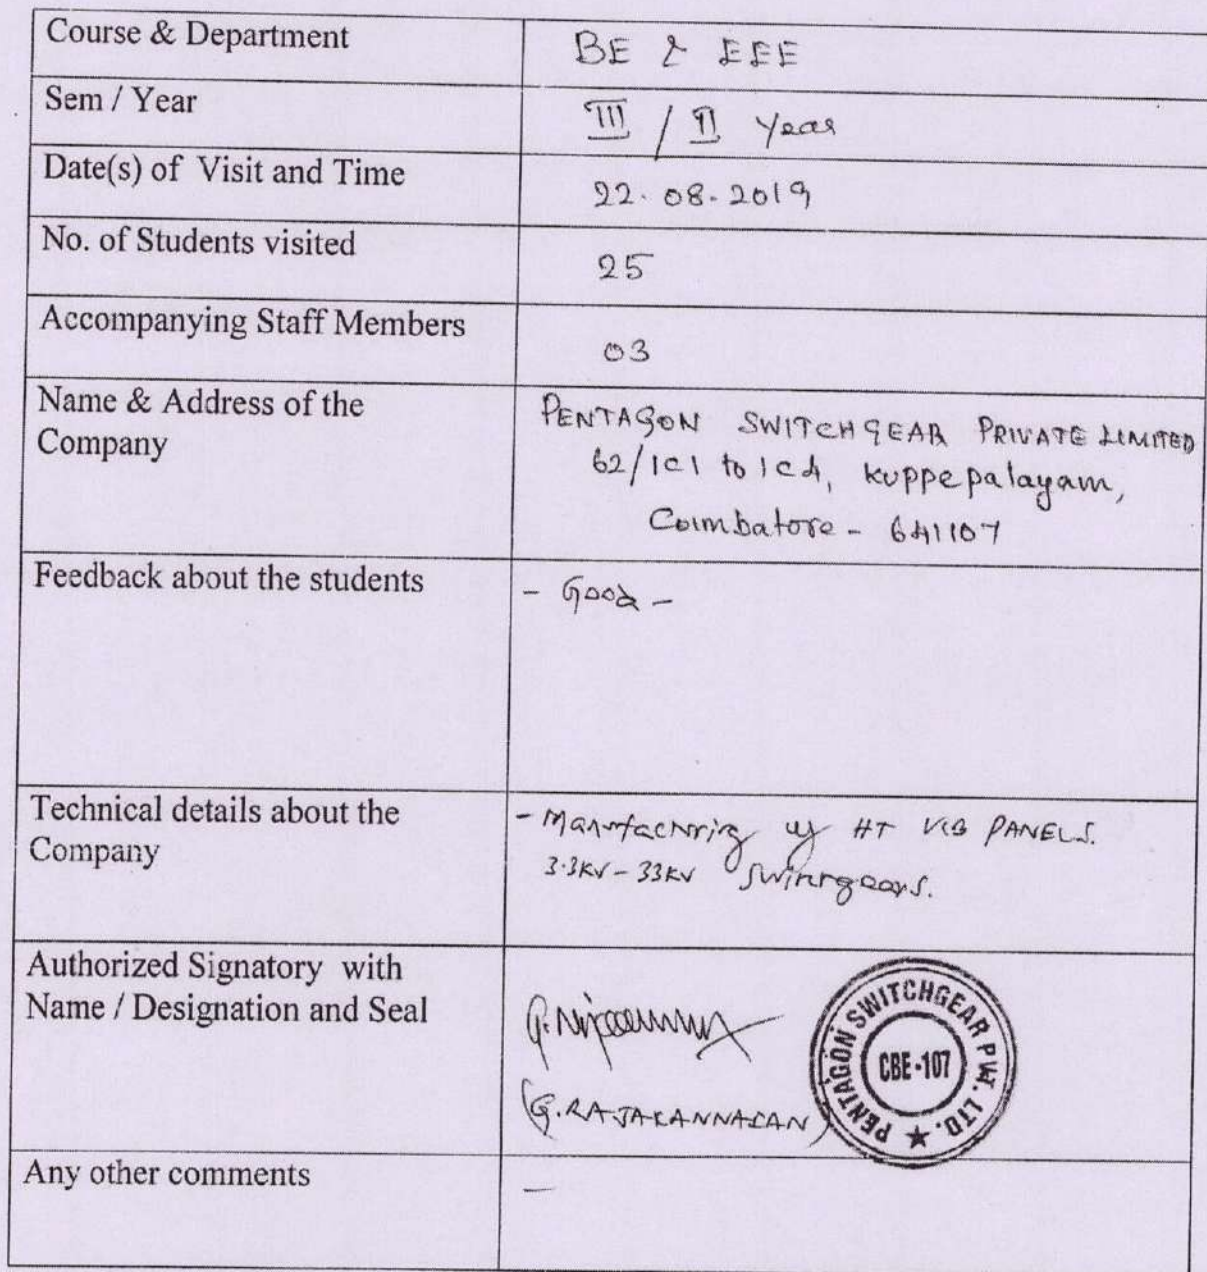 Course & Department
BE & EEE
Sem / Year
III / II Year
Date(s) of Visit and Time
22.08.2019
No. of Students visited
25
Accompanying Staff Members
03
Name & Address of the
Company
PENTAGON SWITCHGEAR PRIVATE LIMITED
62/1C1 to 1C4, Kuppepalayam,
Coimbatore - 641107
Feedback about the students
- Good -
Technical details about the
Company
- Manufacturing of HT VCB PANELS.
3.3KV - 33KV Switchgears.
Authorized Signatory with
Name / Designation and Seal
(G. RAJAKANNAN)
PENTAGON SWITCHGEAR PVT. LTD. ★
CBE-107
Any other comments
—